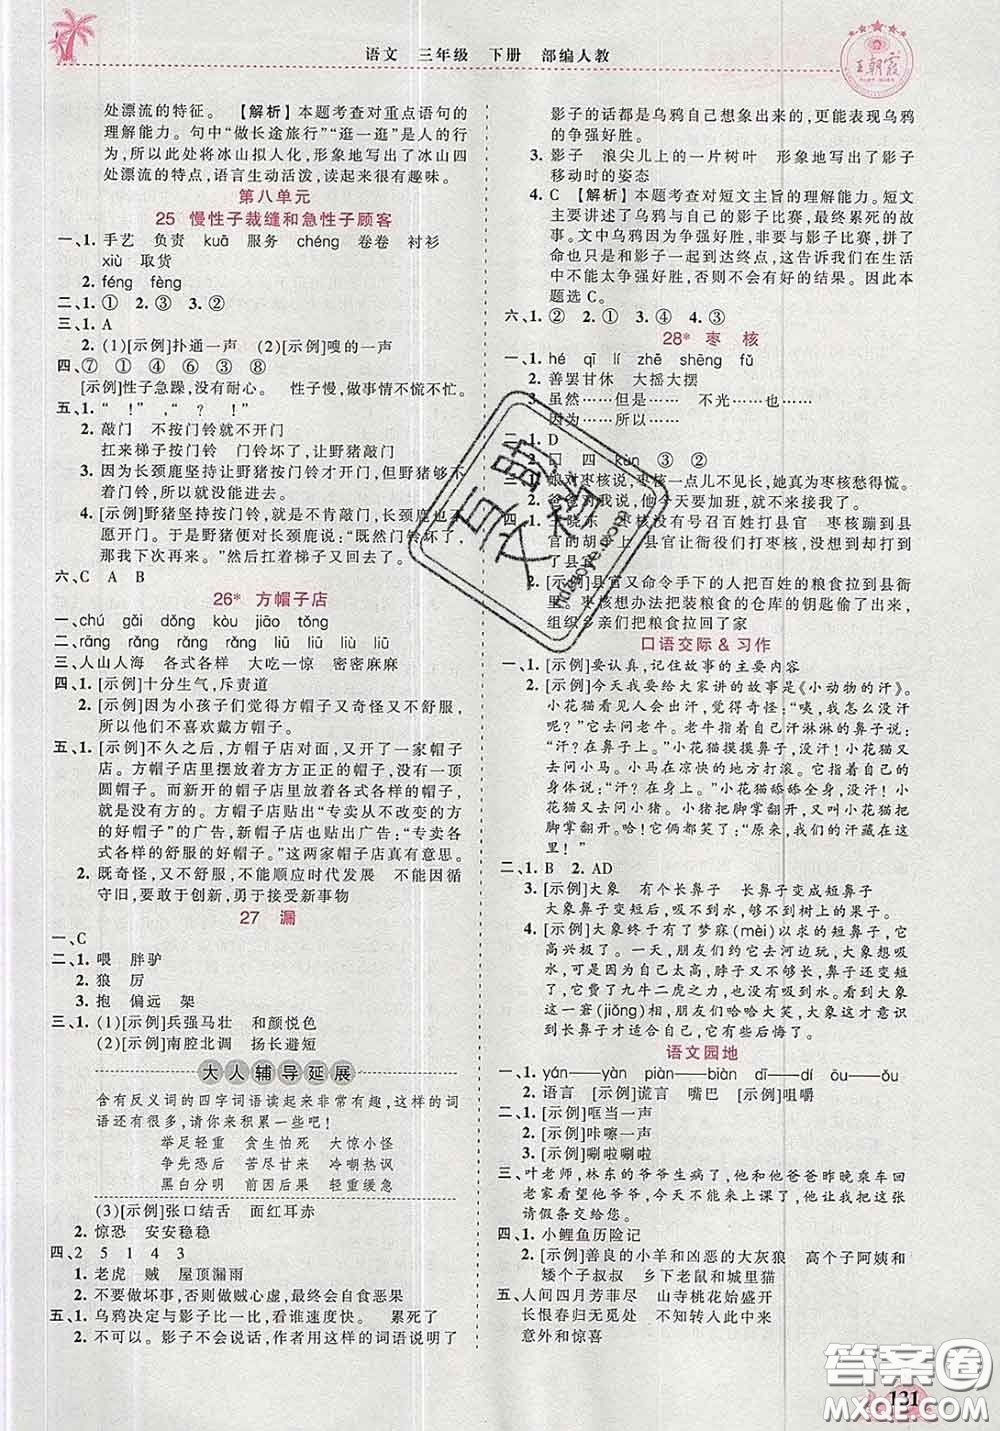 语文 三年级 下册 部编人教
王朝霞
处漂流的特征。 【解析】本题考查对重点语句的
理解能力。句中“做长途旅行”“逛一逛”是人的行
为,所以此处将冰山拟人化,形象地写出了冰山四
处漂流的特点,语言生动活泼,读起来很有趣味。
第八单元
25 慢性子裁缝和急性子顾客
一、1. 手艺 负责 kuā 服务 chéng 卷卷 衬衫
xiù 取货
2. féng fèng
二、1. ① 2. ③ 3. ②
三、1. A
2. (1)[示例]扑通一声 (2)[示例]嗖的一声
四、⑦ ① ④ ⑥ ③ ⑧
[示例]性子急躁,没有耐心。 性子慢,做事情不慌不忙。
五、1. “ !” ,“ ? !”
2. 敲门 不按门铃就不开门
扛来梯子按门铃 门铃坏了,让野猪敲门
3. 因为长颈鹿坚持让野猪按门铃才开门,但野猪够不
着门铃,没办法按门铃,最后野猪就回去了。
4. [示例]野猪坚持敲门,就是不肯敲门,长颈鹿也不
愿开门。于是野猪对长颈鹿说:“既然门铃坏了,
那我下次再来。”然后扛着梯子又回去了。
六、C A B
26* 方帽子店
一、chú gǎi dǒng kòu jiāo tǒng
二、rāng rǎng rǎng rǎng liū liú liù liù
三、人山人海 各式各样 大吃一惊 密密麻麻
四、1. [示例]十分生气,斥责道
2. [示例]因为小孩子们觉得方帽子又奇怪又不舒服,
所以他们不喜欢戴方帽子。
五、1. [示例]不久之后,方帽子店对面,又开了一家帽子
店。方帽子店里摆放着方方正正的帽子,没有一顶
圆帽子。而新开的帽子店里摆放着各式各样的帽子,
就是没有方的。方帽子店贴出了“专卖从不改变的方
的好帽子”的广告,新帽子店也贴出广告:“专卖各
式各样的舒服的好帽子。”这两家帽子店真有意思。
2. 既奇怪,又不舒服,不能顺应时代发展 不能因循
守旧,要敢于创新,勇于接受新事物
27 漏
一、C
二、1. 喂 胖驴
2. 狼 厉
3. 抱 偏远 架
三、1. (1)[示例]兵强马壮 和颜悦色
(2)[示例]南腔北调 扬长避短
大人辅导延展
含有反义词的四字词语读起来非常有趣,这样的词
语还有很多,请你来积累一些吧!
举足轻重 贪生怕死 大惊小怪
争先恐后 苦尽甘来 冷嘲热讽
黑白分明 前因后果 轻重缓急
(3)[示例]张口结舌 面红耳赤
2. 惊恐 安安稳稳
四、2 5 1 4 3
1. 老虎 贼 屋顶漏雨
2. 不要做坏事,否则做贼心虚,最终会自食恶果
五、1. 乌鸦决定与影子比一比,看谁速度快。 累死了
2. 不可以。影子不会说话,作者用这样的词语说明了
影子的话都是乌鸦自己想象出来的,更能表现乌鸦
的争强好胜。
3. 影子 浪尖儿上的一片树叶 形象地写出了影子
移动时的姿态
4. C 【解析】本题考查对短文主旨的理解能力。短文
主要讲述了乌鸦与自己的影子比赛,最终累死的故
事。文中乌鸦因为争强好胜,非要与影子比赛,拼了
命也只能和影子一起到达终点,这告诉我们在生活
中不能太争强好胜,否则不会有好的结果。因此本
题选C。
六、1. ② 2. ① 3. ④ 4. ③
28* 枣核
一、1. hé qī lí zhē shēng fǔ
2. 善罢甘休 大摇大摆
3. 虽然……但是…… 不光……也……
因为……所以……
二、1. D
2. 口 四 kùn ③ ②
三、1. 娘对枣核说,枣核一点儿不见长,她真为枣核愁得慌。
2. 爸爸对我说,他今天要加班,就不来了。
四、1. 王晓东 枣核没有号召百姓打县官 枣核蹦到县
官的胡子上,县官让衙役们打枣核,没想到却打到
了县官
2. [示例]县官又命令手下的人把百姓的粮食拉到县衙
里。枣核想办法把装粮食的仓库的钥匙偷了出来,
组织乡亲们把粮食拉回了家
口语交际 & 习作
一、1. [示例]要认真,记住故事的主要内容
2. [示例]今天我要给大家讲的故事是《小动物的汗》。
小花猫看见人会出汗,觉得奇怪:“咦,我怎么没有汗
呢?”它去问老牛。老牛指着自己汗淋淋的鼻子说:
“汗?在鼻子上。”小花猫摸摸鼻子,没汗!小花猫又
去问小马。小马在凉快的地方打滚。“汗?在自己的
身体上。”小马说:“汗?在身上。”小花猫舔舔全身,没汗!
小花猫又去问小猪。小猪把脚掌翻开。小花猫也把
脚掌翻开。哈!它们都笑了:“原来,我们的汗藏在这
里!”
二、1. B 2. AD
3. [示例]大象 有个长鼻子 长鼻子变短鼻子
大象鼻子变短后,吸不到水,够不到树上的果子。
4. [示例]大象终于有了梦寐(mèi)以求的短鼻子,它
高兴极了。一天,朋友们约它去河边玩,大象想吸
水,可是因为自己太高,脖子又不够长,鼻子还变短
了,它费了九牛二虎之力,也没喝到水。看到大象
这一窘(jiǒng)样,朋友们哈哈大笑。大象这才意识
到长鼻子才适合自己,它有些后悔了。
语文园地
一、1. yán——yàn piàn——biàn dī——dí ōu——ǒu
2. 语言 [示例]谎言 嘴巴 [示例]咀嚼
二、1. [示例]哐当一声
2. [示例]咔嚓一声
3. [示例]唰啦唰啦
三、叶老师,林东的爷爷生病了,他和他爸爸昨晚乘车回
老家看望他爷爷,今天不能来上课了,他让我把这张
请假条交给您。
四、1. 小鲤鱼历险记
2. [示例]善良的小羊和凶恶的大灰狼 高个子阿姨和
矮个子叔叔 乡下老鼠和城里猫
五、人间四月芳菲尽 山寺桃花始盛开
长恨春归无觅处 不知转入此中来
意外和惊喜
直映文档
答案圈
MXQE.COM
131